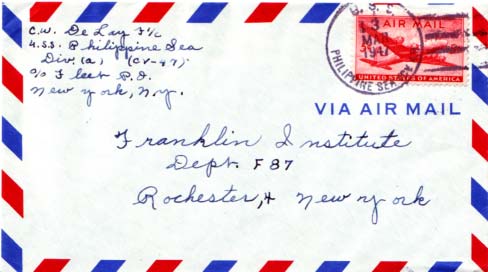 C.W. De Lay F1/c
U.S.S. Philippine Sea
Div. (A) (CV-47)
c/o Fleet P.O.
New York, N.Y.
U. S. S.
3
MAR
1947
PHILIPPINE SEA
AIR MAIL
UNITED STATES OF AMERICA
VIA AIR MAIL
Franklin Institute
Dept. F 87
Rochester, New York